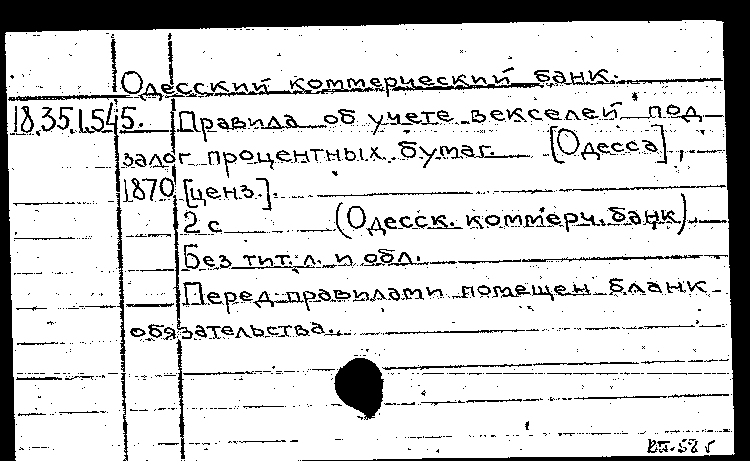 Одесский коммерческий банк.
18.35.1.545. Правила об учете векселей под
залог процентных бумаг. [Одесса],
1870 [ценз.].
2 с (Одесск. коммерч. банк).
Без тит. л. и обл.
Перед правилами помещен бланк
обязательства.